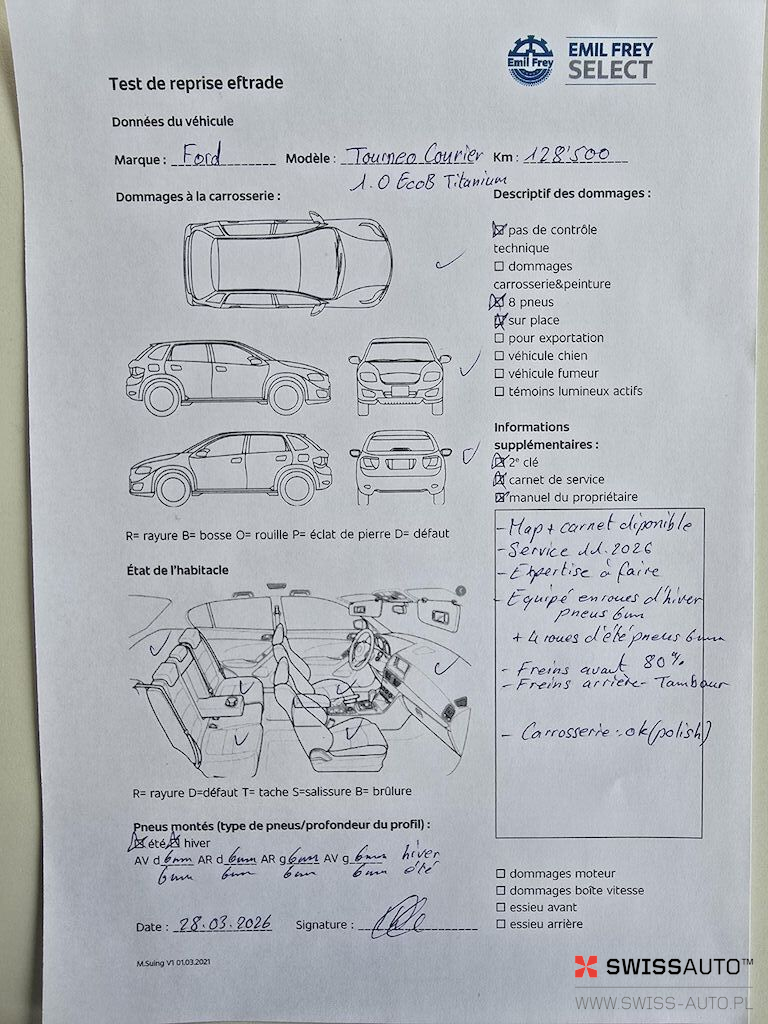 Emil Frey
EMIL FREY
SELECT
Test de reprise eftrade
Données du véhicule
Marque : Ford Modèle : Tourneo Courier Km : 128'500
1.0 EcoB Titanium
Dommages à la carrosserie :
Descriptif des dommages :
pas de contrôle
technique
dommages
carrosserie&peinture
8 pneus
sur place
pour exportation
véhicule chien
véhicule fumeur
témoins lumineux actifs
Informations
supplémentaires :
2e clé
carnet de service
manuel du propriétaire
R= rayure B= bosse O= rouille P= éclat de pierre D= défaut
- Map + carnet disponible
- Service 11.2026
- Expertise à faire
- Equipé en roues d'hiver
pneus 6mm
+ 4 roues d'été pneus 6mm
- Freins avant 80%
- Freins arrière - Tambour
- Carrosserie : ok (polish)
État de l'habitacle
R= rayure D=défaut T= tache S=salissure B= brûlure
Pneus montés (type de pneus/profondeur du profil) :
été hiver
AV d 6mm AR d 6mm AR g 6mm AV g 6mm hiver
6mm 6mm 6mm 6mm été
dommages moteur
dommages boîte vitesse
essieu avant
essieu arrière
Date : 28.03.2026 Signature :
M.Suing V1 01.03.2021
SWISSAUTO™
WWW.SWISS-AUTO.PL